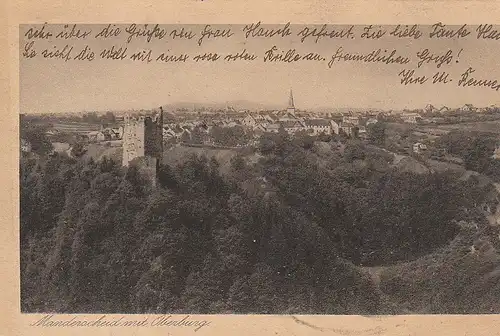 sehr über die Grüße von Frau Hauch gefreut. Die liebe Tante Ha
Sie sieht die Welt mit einer rosa roten Brille an. freundlichen Gruß!
Ihre M.
Manderscheid mit Oberburg